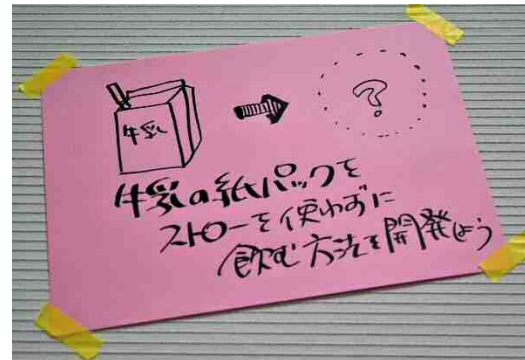 牛乳
?
牛乳の紙パックを
ストローを使わずに
飲む方法を開発しよう